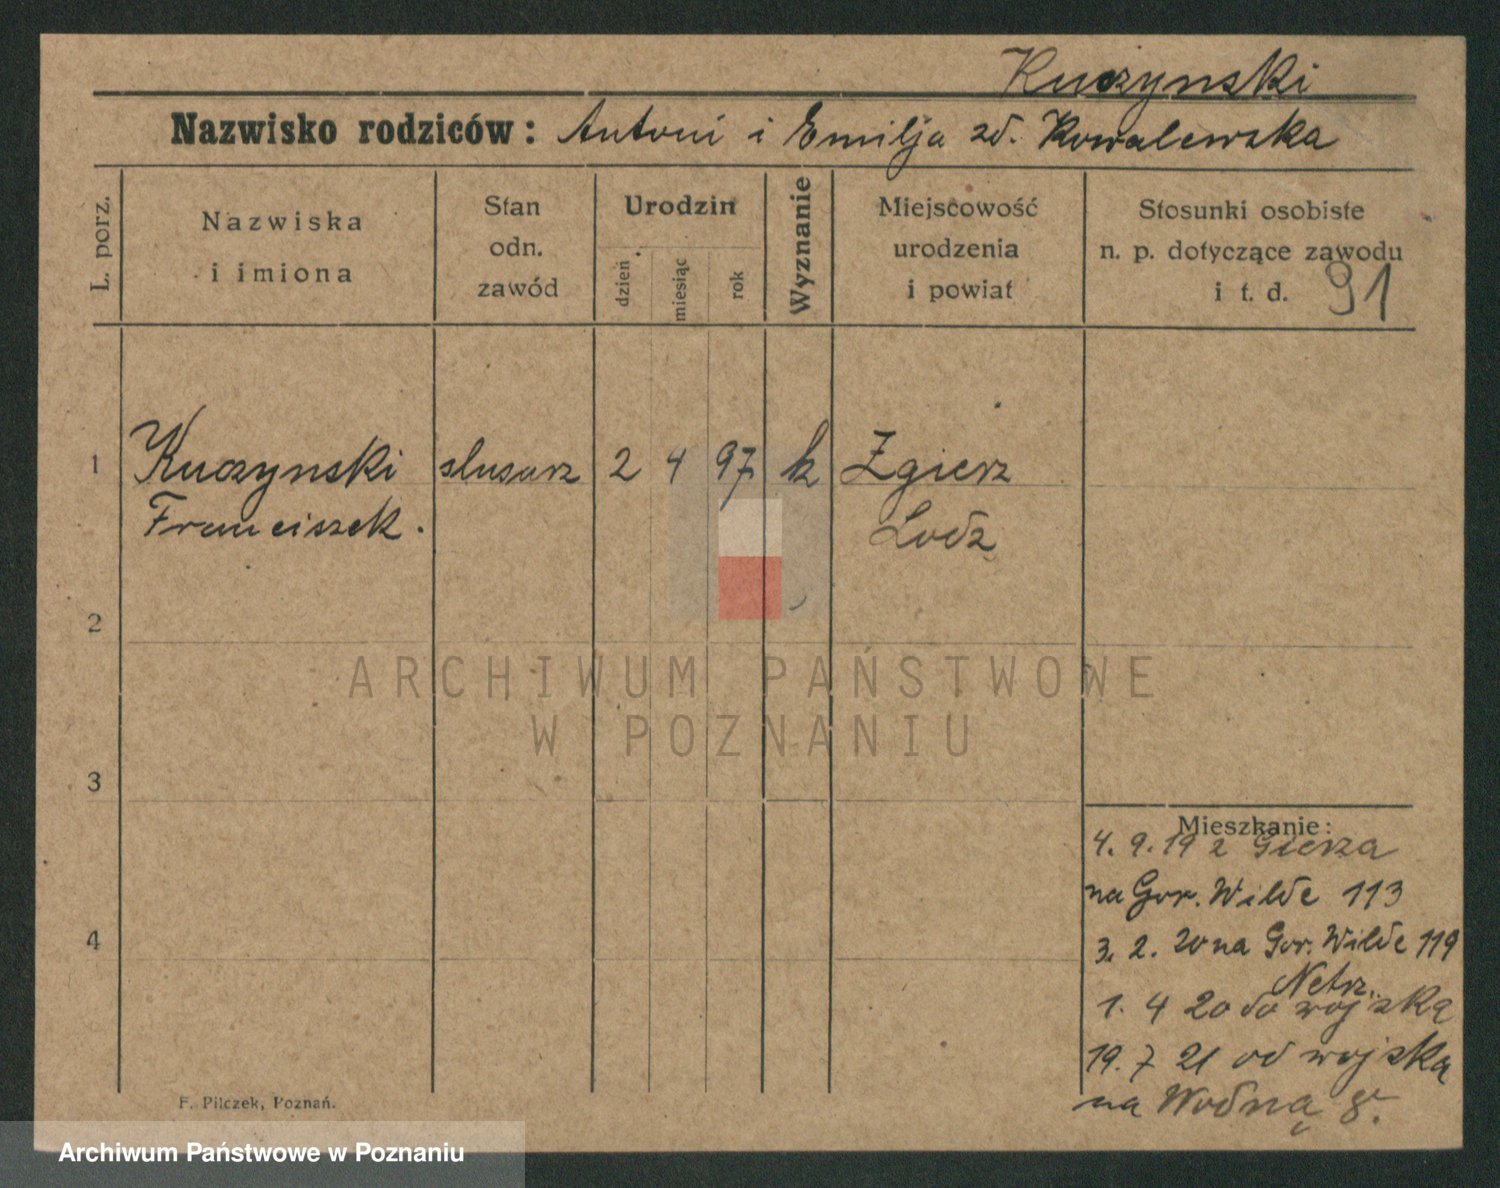 Kuczynski
Nazwisko rodziców: Antoni i Emilja zd. Kowalewska
L. porz.
Nazwiska
i imiona
Stan
odn.
zawód
Urodzin
dzień
miesiąc
rok
Wyznanie
Miejscowość
urodzenia
i powiat
Stosunki osobiste
n. p. dotyczące zawodu
i t. d.
91
1 Kuczynski slusarz 2 4 97 k Zgierz
Franciszek. Lodz
2
3
4
ARCHIWUM PAŃSTWOWE
W POZNANIU
Mieszkanie:
4. 9. 19 z Gierza
na Gor. Wilde 113
3. 2. 20 na Gor. Wilde 119
1. 4 20 do wojska
19. 7 21 od wojska
na Wodną 8.
F. Pilczek, Poznań.
Archiwum Państwowe w Poznaniu